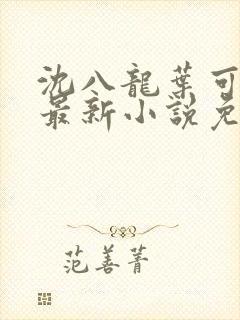 沈八龍葉可
最新小說免
范善菁